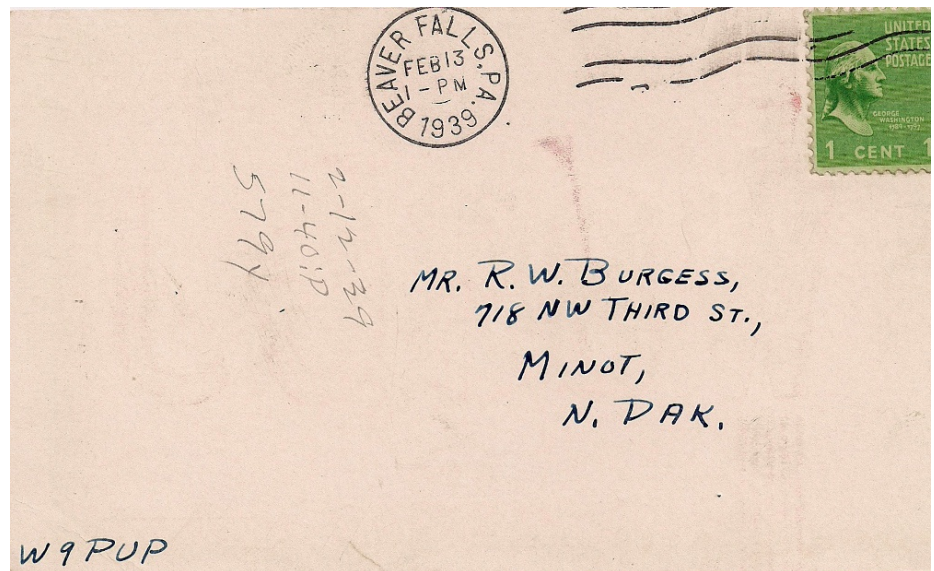 BEAVER FALLS, PA.
FEB 13
1 - PM
1939
UNITED
STATES
POSTAGE
GEORGE
WASHINGTON
1789-1797
1 CENT 1
2-12-39
11-40:P
579Y
MR. R. W. BURGESS,
718 NW THIRD ST.,
MINOT,
N. DAK.
W9PUP